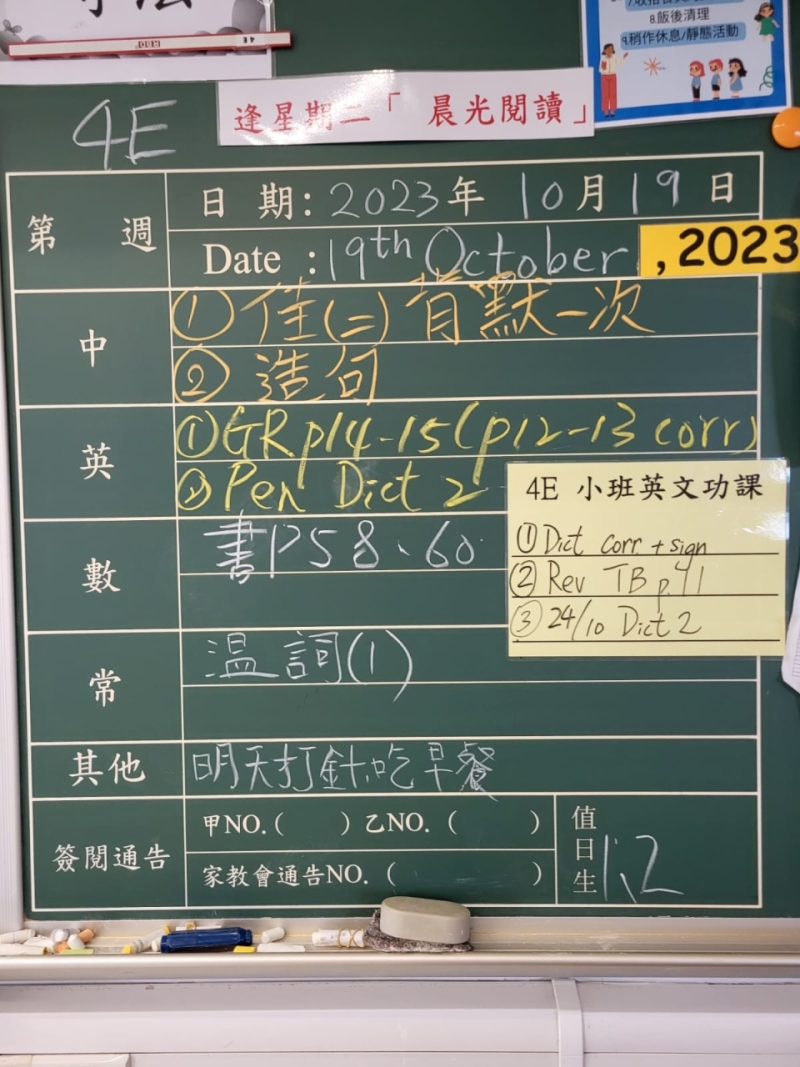 8.飯後清理
9.稍作休息/靜態活動
4E
逢星期二「晨光閱讀」
第 週
日 期: 2023年 10月 19日
Date : 19th October , 2023
中
① 佳(二)背默一次
② 造句
英
① GR p14-15 (p12-13 corr)
② Pen Dict 2
4E 小班英文功課
① Dict corr + sign
② Rev TB p.41
③ 24/10 Dict 2
數
書P58、60
常
温詞(1)
其他
明天打針,吃早餐
簽閱通告
甲NO.( ) 乙NO.( )
家教會通告NO.( )
值日生
1,2